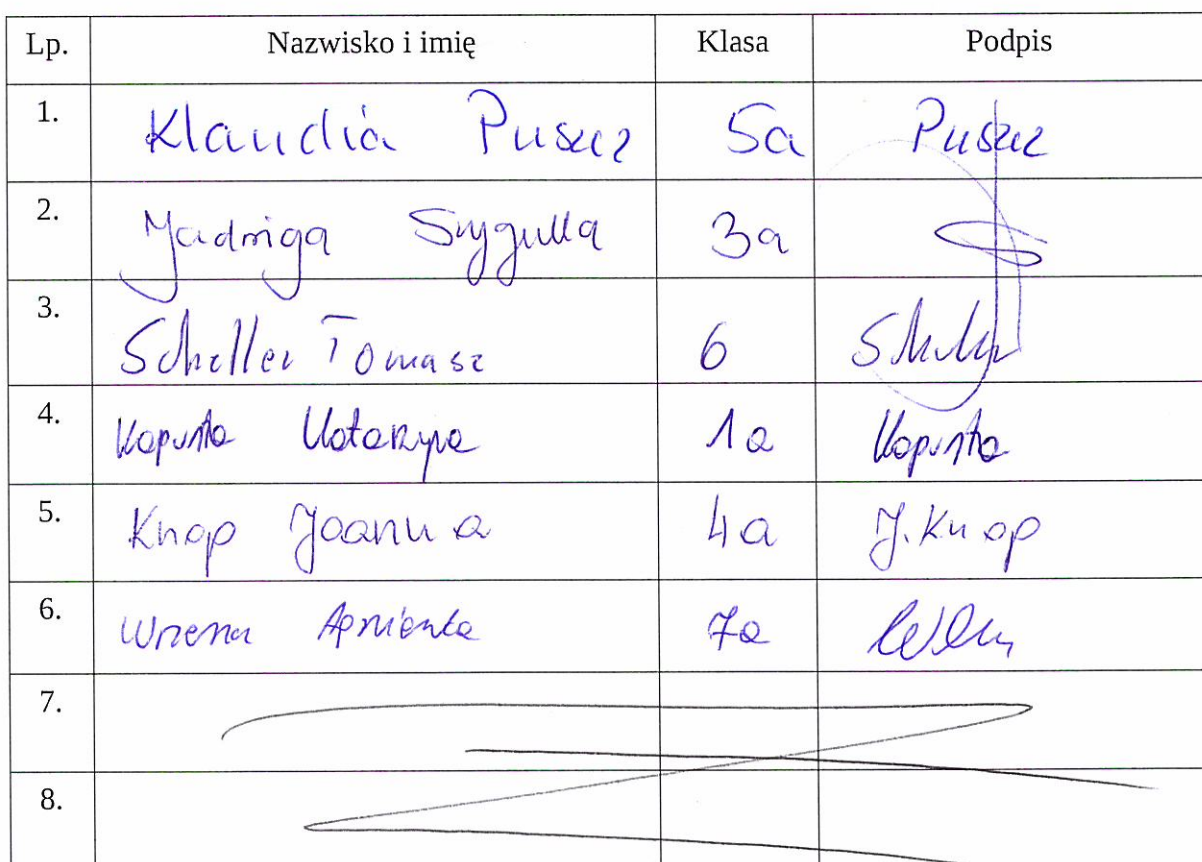 Lp. Nazwisko i imię Klasa Podpis
1. Klaudia Puszcz 5a Puszcz
2. Jadwiga Szygulla 3a
3. Scheller Tomasz 6
4. Kapusta Katarzyna 1a Kapusta
5. Knap Joanna 4a J. Knap
6. Agnieszka 7a
7.
8.